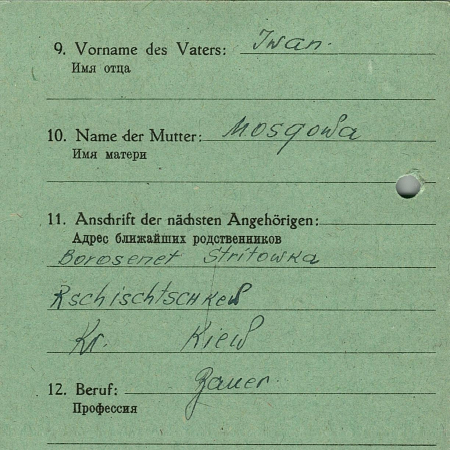 9. Vorname des Vaters: Iwan.
Имя отца
10. Name der Mutter: Mosgowa
Имя матери
11. Anschrift der nächsten Angehörigen:
Адрес ближайших родственников
Borosenet Stritowka
Rschischtschkew
Kr. Kiew
12. Beruf: Bauer.
Профессия